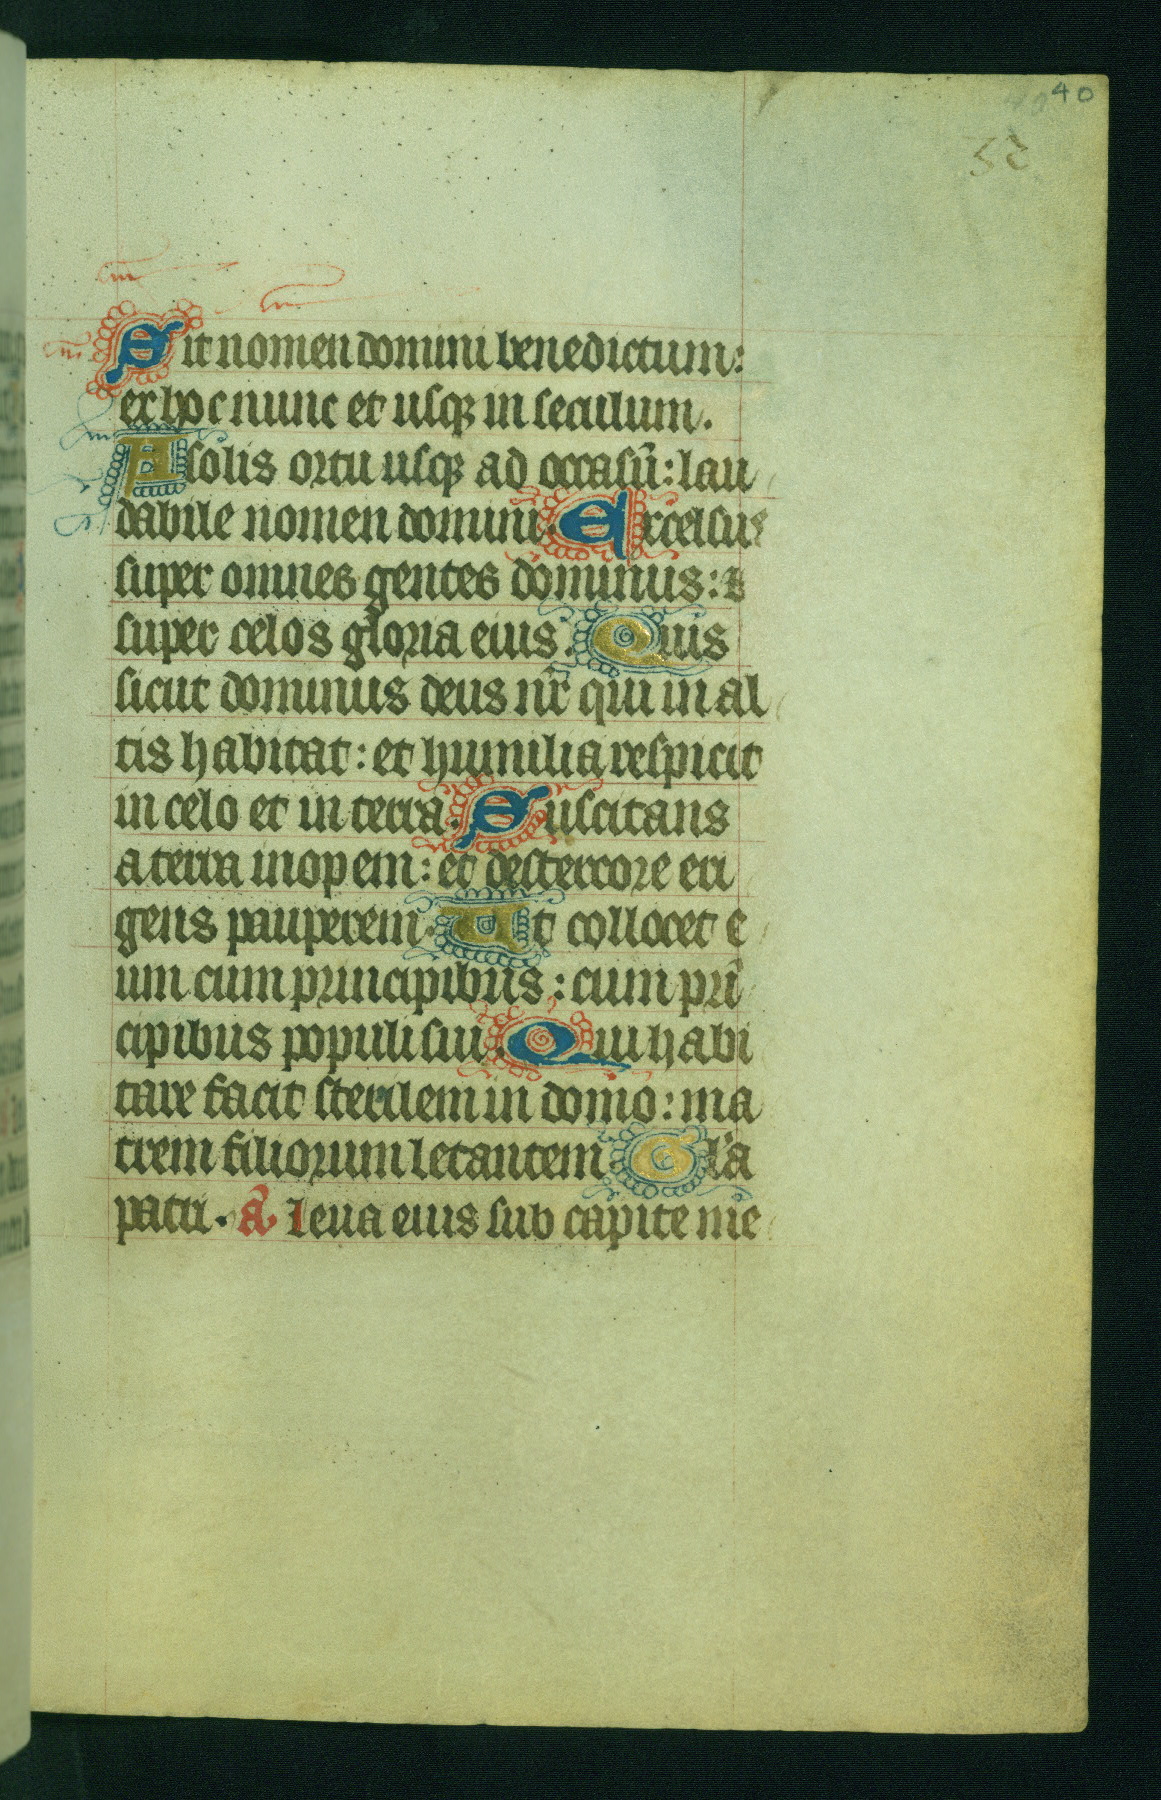 40
Sit nomen domini benedictum:
ex hoc nunc et usqꝫ in seculum.
A solis ortu usqꝫ ad occasū: lau
dabile nomen domini. Excelsus
super omnes gentes dominus: ⁊
super celos gloria eius. Quis
sicut dominus deus nr̄ qui in al
tis habitat: et humilia respicit
in celo et in terra. Suscitans
a terra inopem: et de stercore eri
gens pauperem. Ut collocet e
um cum principibus: cum prī
cipibus populi sui. Qui habi
tare facit sterilem in domo: ma
trem filiorum letantem. Gl'a
patri. ā leua eius sub capite me